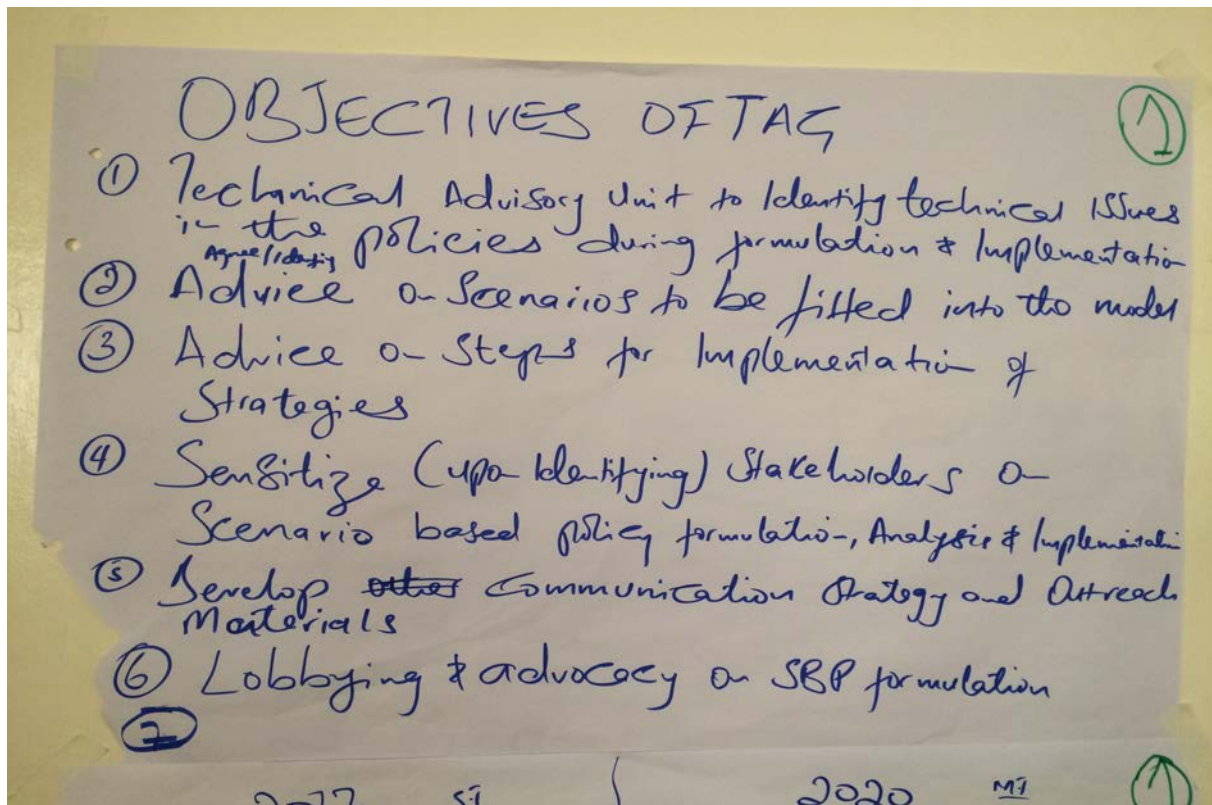 OBJECTIVES OF TAG
1
① Technical Advisory Unit to Identify technical Issues
in the policies during formulation & Implementation
Agree/identify
② Advice on Scenarios to be fitted into the model
③ Advice on Steps for Implementation of
Strategies
④ Sensitize (upon Identifying) Stakeholders on
Scenario based policy formulation, Analysis & Implementation
⑤ Develop other Communication Strategy and Outreach
Materials
⑥ Lobbying & advocacy on SBP formulation
⑦
2020